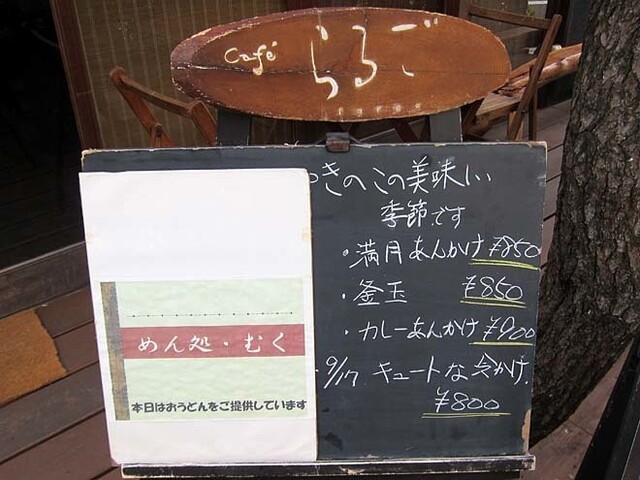 Café らるご
きのこの美味しい
季節です
・満月あんかけ ¥850
・釜玉 ¥850
・カレーあんかけ ¥900
・9/17 キュートな
¥800
めん処・むく
本日はおうどんをご提供しています